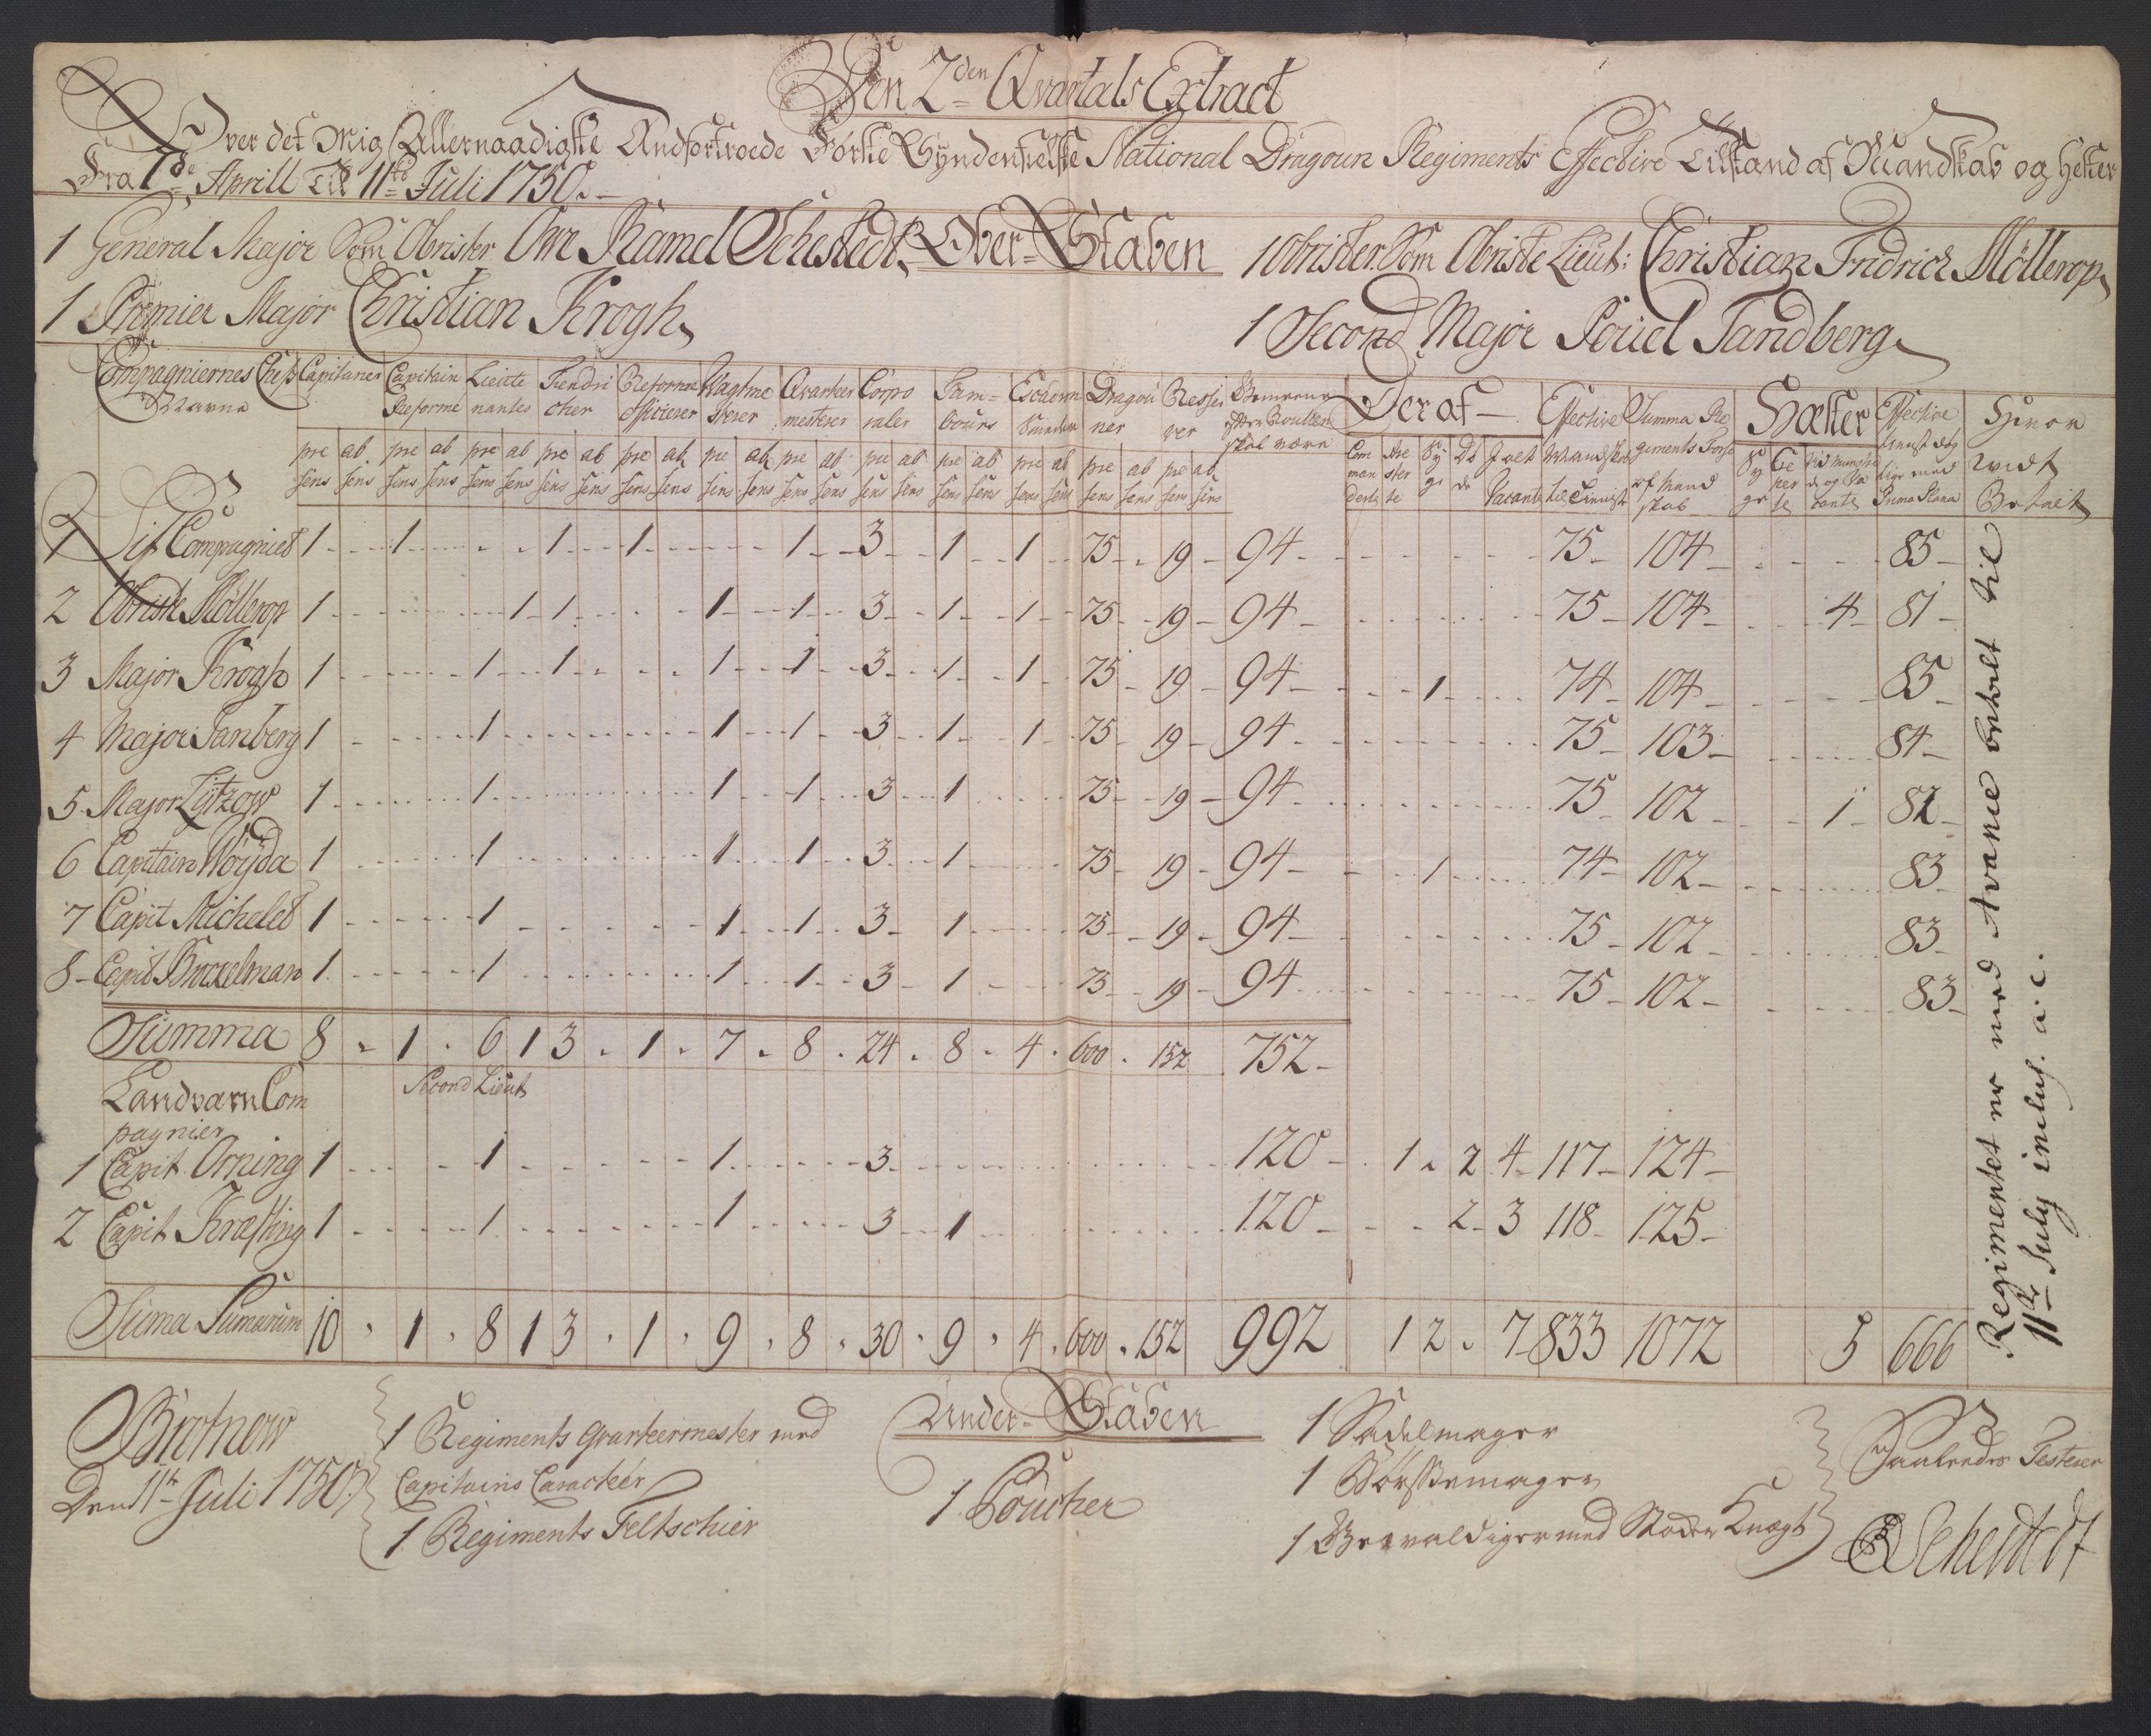 Den 2den Qvartals Extract
Over det Mig Allernaadigste Andfortroede Förste Syndenfielske National Dragoun Regiments Effective Tilstand af Mandskab og Hester
Fra 1de Aprill Til 11te Juli 1750.
Over-Staben
1 General Major Som Obrister Ove Ramel Sehestedt
1 Obrister Som Obriste Lieut: Christian Fridrich Möllerop
1 Premier Major Christian Krogh
1 Second Major Pouel Tandberg
Compagniernes Chefs Navne | Capitainer | Capitain Reforme | Lieutenantes | Fendricher | Reforme Officierer | Wagtmesterer | Qvarteermesterer | Corporaler | Tambours | Escadron | Dragouner | Resserver | skal være | Deraf | Effective Mandskab til Tienniste | Summa Regiments Forse af Mandskab | Hæster | Effective | Hvor vidt Betalt
pre sens | ab sens | pre sens | ab sens | pre sens | ab sens | pre sens | ab sens | pre sens | ab sens | pre sens | ab sens | pre sens | ab sens | pre sens | ab sens | pre sens | ab sens | pre sens | ab sens | pre sens | ab sens | pre sens | ab sens | Commanderte | Arresterte | Syge | Döde | Vacante | Syge | Prima Plana
1 Lif Compagniet 1 1 1 1 1 3 1 1 75 19 94 75 104 85
2 Obriste Möllerop 1 1 1 1 1 3 1 1 75 19 94 75 104 4 81
3 Major Krogh 1 1 1 1 1 3 1 1 75 19 94 1 74 104 85
4 Major Tanberg 1 1 1 1 3 1 1 75 19 94 75 103 84
5 Major Lützow 1 1 1 1 3 1 75 19 94 75 102 1 82
6 Capitain Wöyda 1 1 1 1 3 1 75 19 94 1 74 102 83
7 Capit Michelet 1 1 1 1 3 1 75 19 94 75 102 83
8 Capit 1 1 1 1 3 1 75 19 94 75 102 83
Summa 8 1 6 1 3 1 7 8 24 8 4 600 152 752
Second Lieut
Landværn Com
pagnier
1 Capit Orning 1 1 1 3 120 1 2 4 117 124
2 Capit Kræfting 1 1 1 3 1 120 2 3 118 125
Suma Sumarum 10 1 8 1 3 1 9 8 30 9 4 600 152 992 1 2 7 833 1072 5 666
Regimentet er med Avance betalt til
11te July inclus. a. c.
Brotnow
Den 11te Juli 1750
Under-Staben
1 Regiments Qvarteermester med
Capitains Caracteer
1 Regiments Feltschier
1 Poucher
1 Sadelmager
1 Börssemager
1 Gevaldiger med Stoder Knægt
Saaledes Testerer
Sehestedt